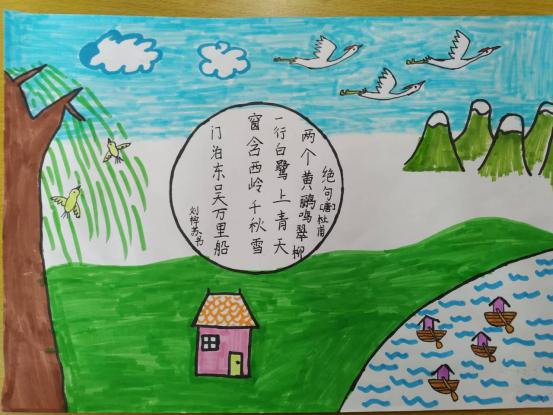 绝句
[唐]杜甫
两个黄鹂鸣翠柳
一行白鹭上青天
窗含西岭千秋雪
门泊东吴万里船
刘梓苏书